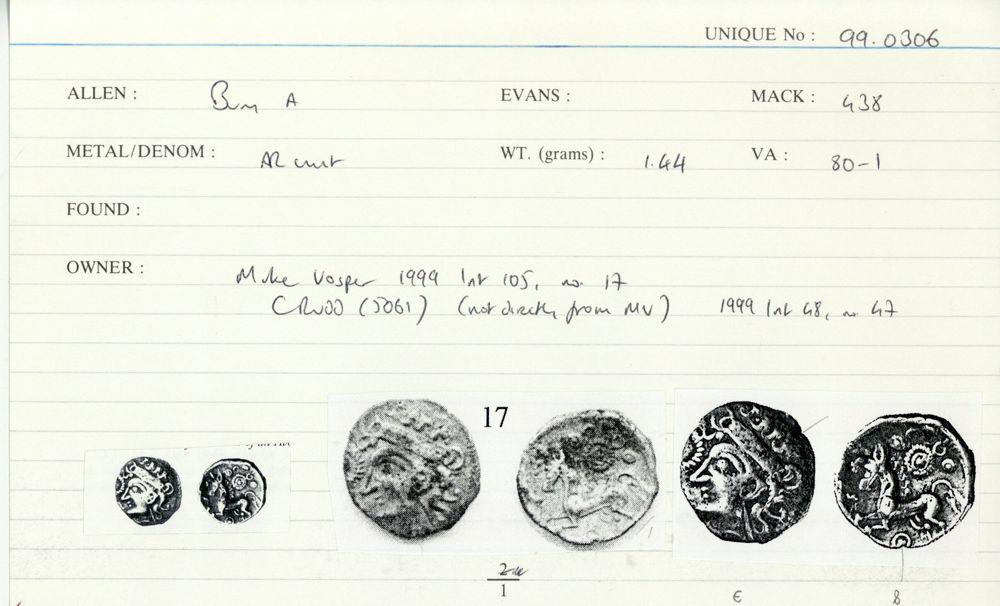 UNIQUE No : 99.0306
ALLEN : Bury A EVANS : MACK : 438
METAL/DENOM : AR unit WT. (grams) : 1.44 VA : 80-1
FOUND :
OWNER : Mike Vosper 1999 list 105, no. 17
CRudd (5061) (not directly from MV) 1999 list 48, no 47
17
1